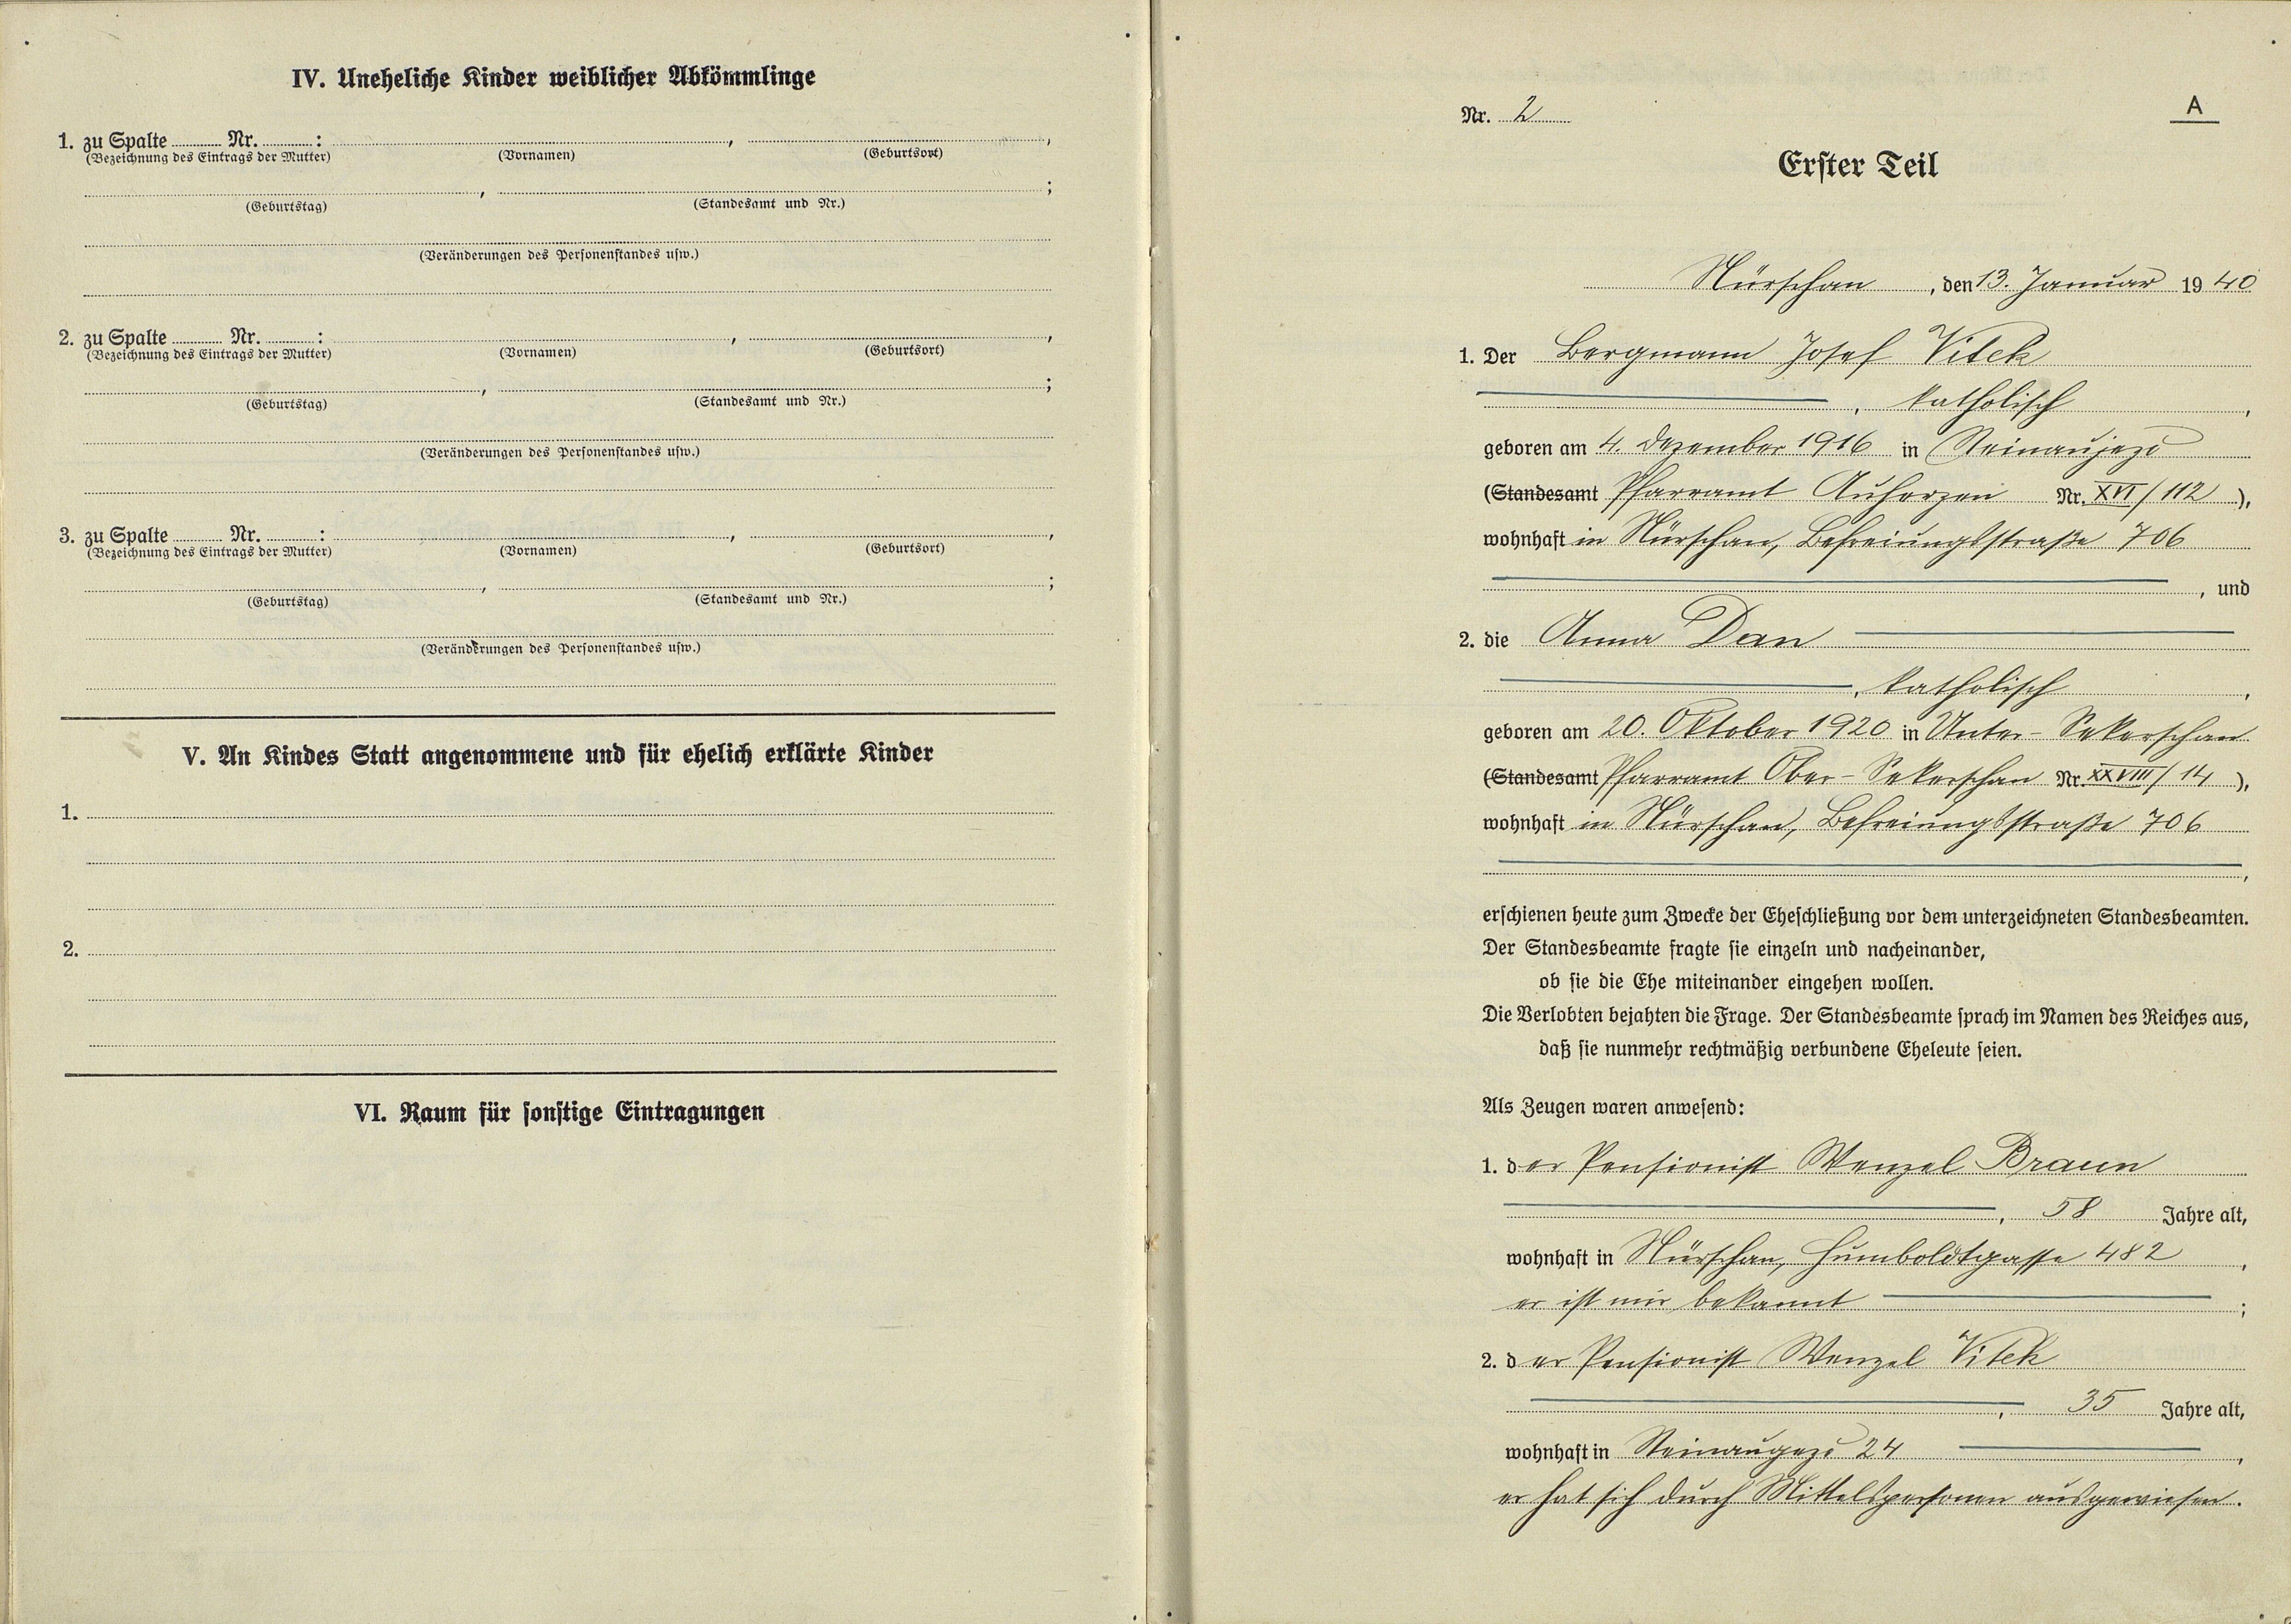 IV. Uneheliche Kinder weiblicher Abkömmlinge
1. zu Spalte ........ Nr. ........ : , ,
(Bezeichnung des Eintrags der Mutter) (Vornamen) (Geburtsort)
, ;
(Geburtstag) (Standesamt und Nr.)
(Veränderungen des Personenstandes usw.)
2. zu Spalte ........ Nr. ........ : , ,
(Bezeichnung des Eintrags der Mutter) (Vornamen) (Geburtsort)
, ;
(Geburtstag) (Standesamt und Nr.)
(Veränderungen des Personenstandes usw.)
3. zu Spalte ........ Nr. ........ : , ,
(Bezeichnung des Eintrags der Mutter) (Vornamen) (Geburtsort)
, ;
(Geburtstag) (Standesamt und Nr.)
(Veränderungen des Personenstandes usw.)
V. An Kindes Statt angenommene und für ehelich erklärte Kinder
1.
2.
VI. Raum für sonstige Eintragungen
Nr. 2
A
Erster Teil
Nürschan, den 13. Januar 1940
1. Der Bergmann Josef Vitek
, katholisch,
geboren am 4. Dezember 1916 in Steinaujezd
(Standesamt Pfarramt Auherzen Nr. XVI/112),
wohnhaft in Nürschan, Befreiungsstraße 706
, und
2. die Anna Dan
, katholisch,
geboren am 20. Oktober 1920 in Unter-Sekerschan
(Standesamt Pfarramt Ober-Sekerschan Nr. XXVIII/14),
wohnhaft in Nürschan, Befreiungsstraße 706
,
erschienen heute zum Zwecke der Eheschließung vor dem unterzeichneten Standesbeamten.
Der Standesbeamte fragte sie einzeln und nacheinander,
ob sie die Ehe miteinander eingehen wollen.
Die Verlobten bejahten die Frage. Der Standesbeamte sprach im Namen des Reiches aus,
daß sie nunmehr rechtmäßig verbundene Eheleute seien.
Als Zeugen waren anwesend:
1. der Pensionist Wenzel Braun
, 58 Jahre alt,
wohnhaft in Nürschan, Humboldtgasse 482,
er ist mir bekannt ;
2. der Pensionist Wenzel Vitek
, 35 Jahre alt,
wohnhaft in Steinaugezd 24,
er hat sich durch Mittelspersonen ausgewiesen.